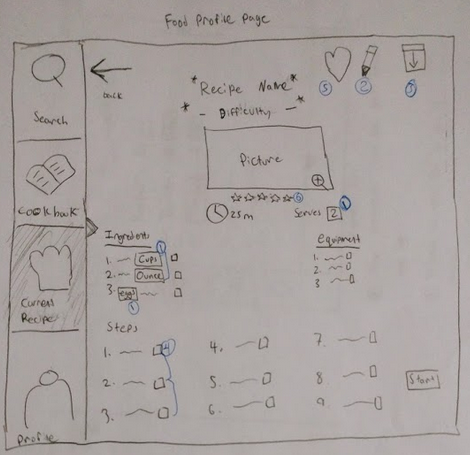 Food Profile Page
back
Search
Cookbook
Current
Recipes
Profile
*Recipe Name*
* - Difficulty - *
5
2
3
Picture
6
25 m
Serves 2
1
Ingredients
1. Cups
2. Ounce
3. eggs
1
1
Equipment
1.
2.
3
Steps
1.
4
2.
3.
4.
5.
6.
7.
8
9
Start